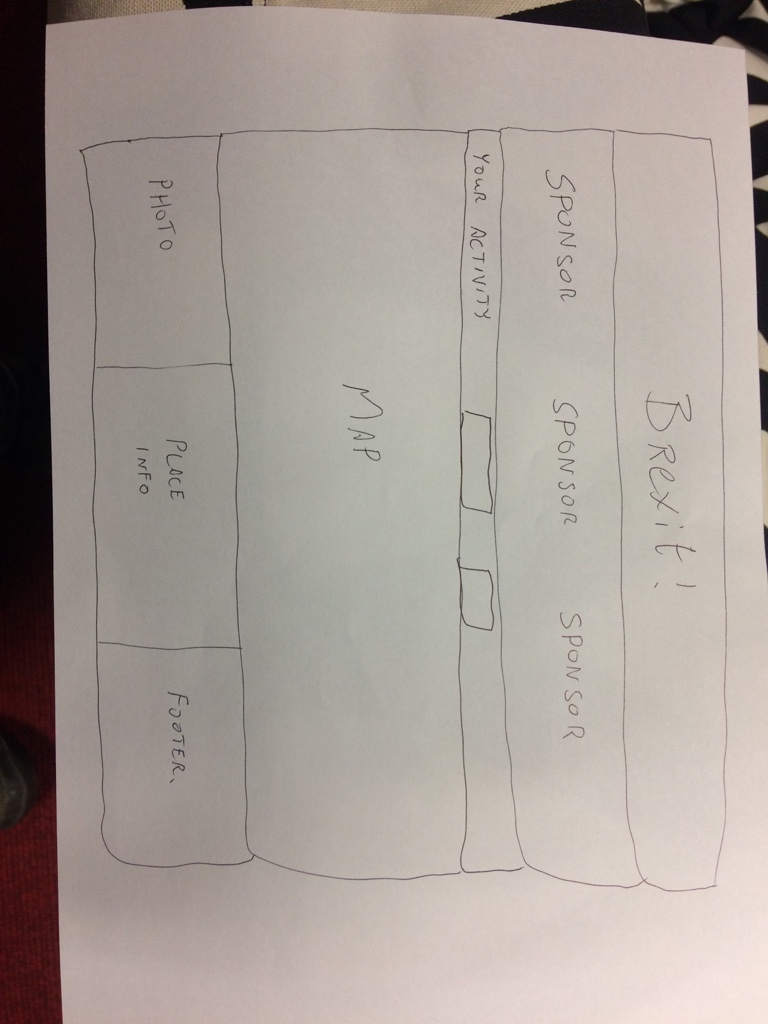 Brexit!
SPONSOR SPONSOR SPONSOR
YOUR ACTIVITY
MAP
PHOTO
PLACE
INFO
FOOTER.